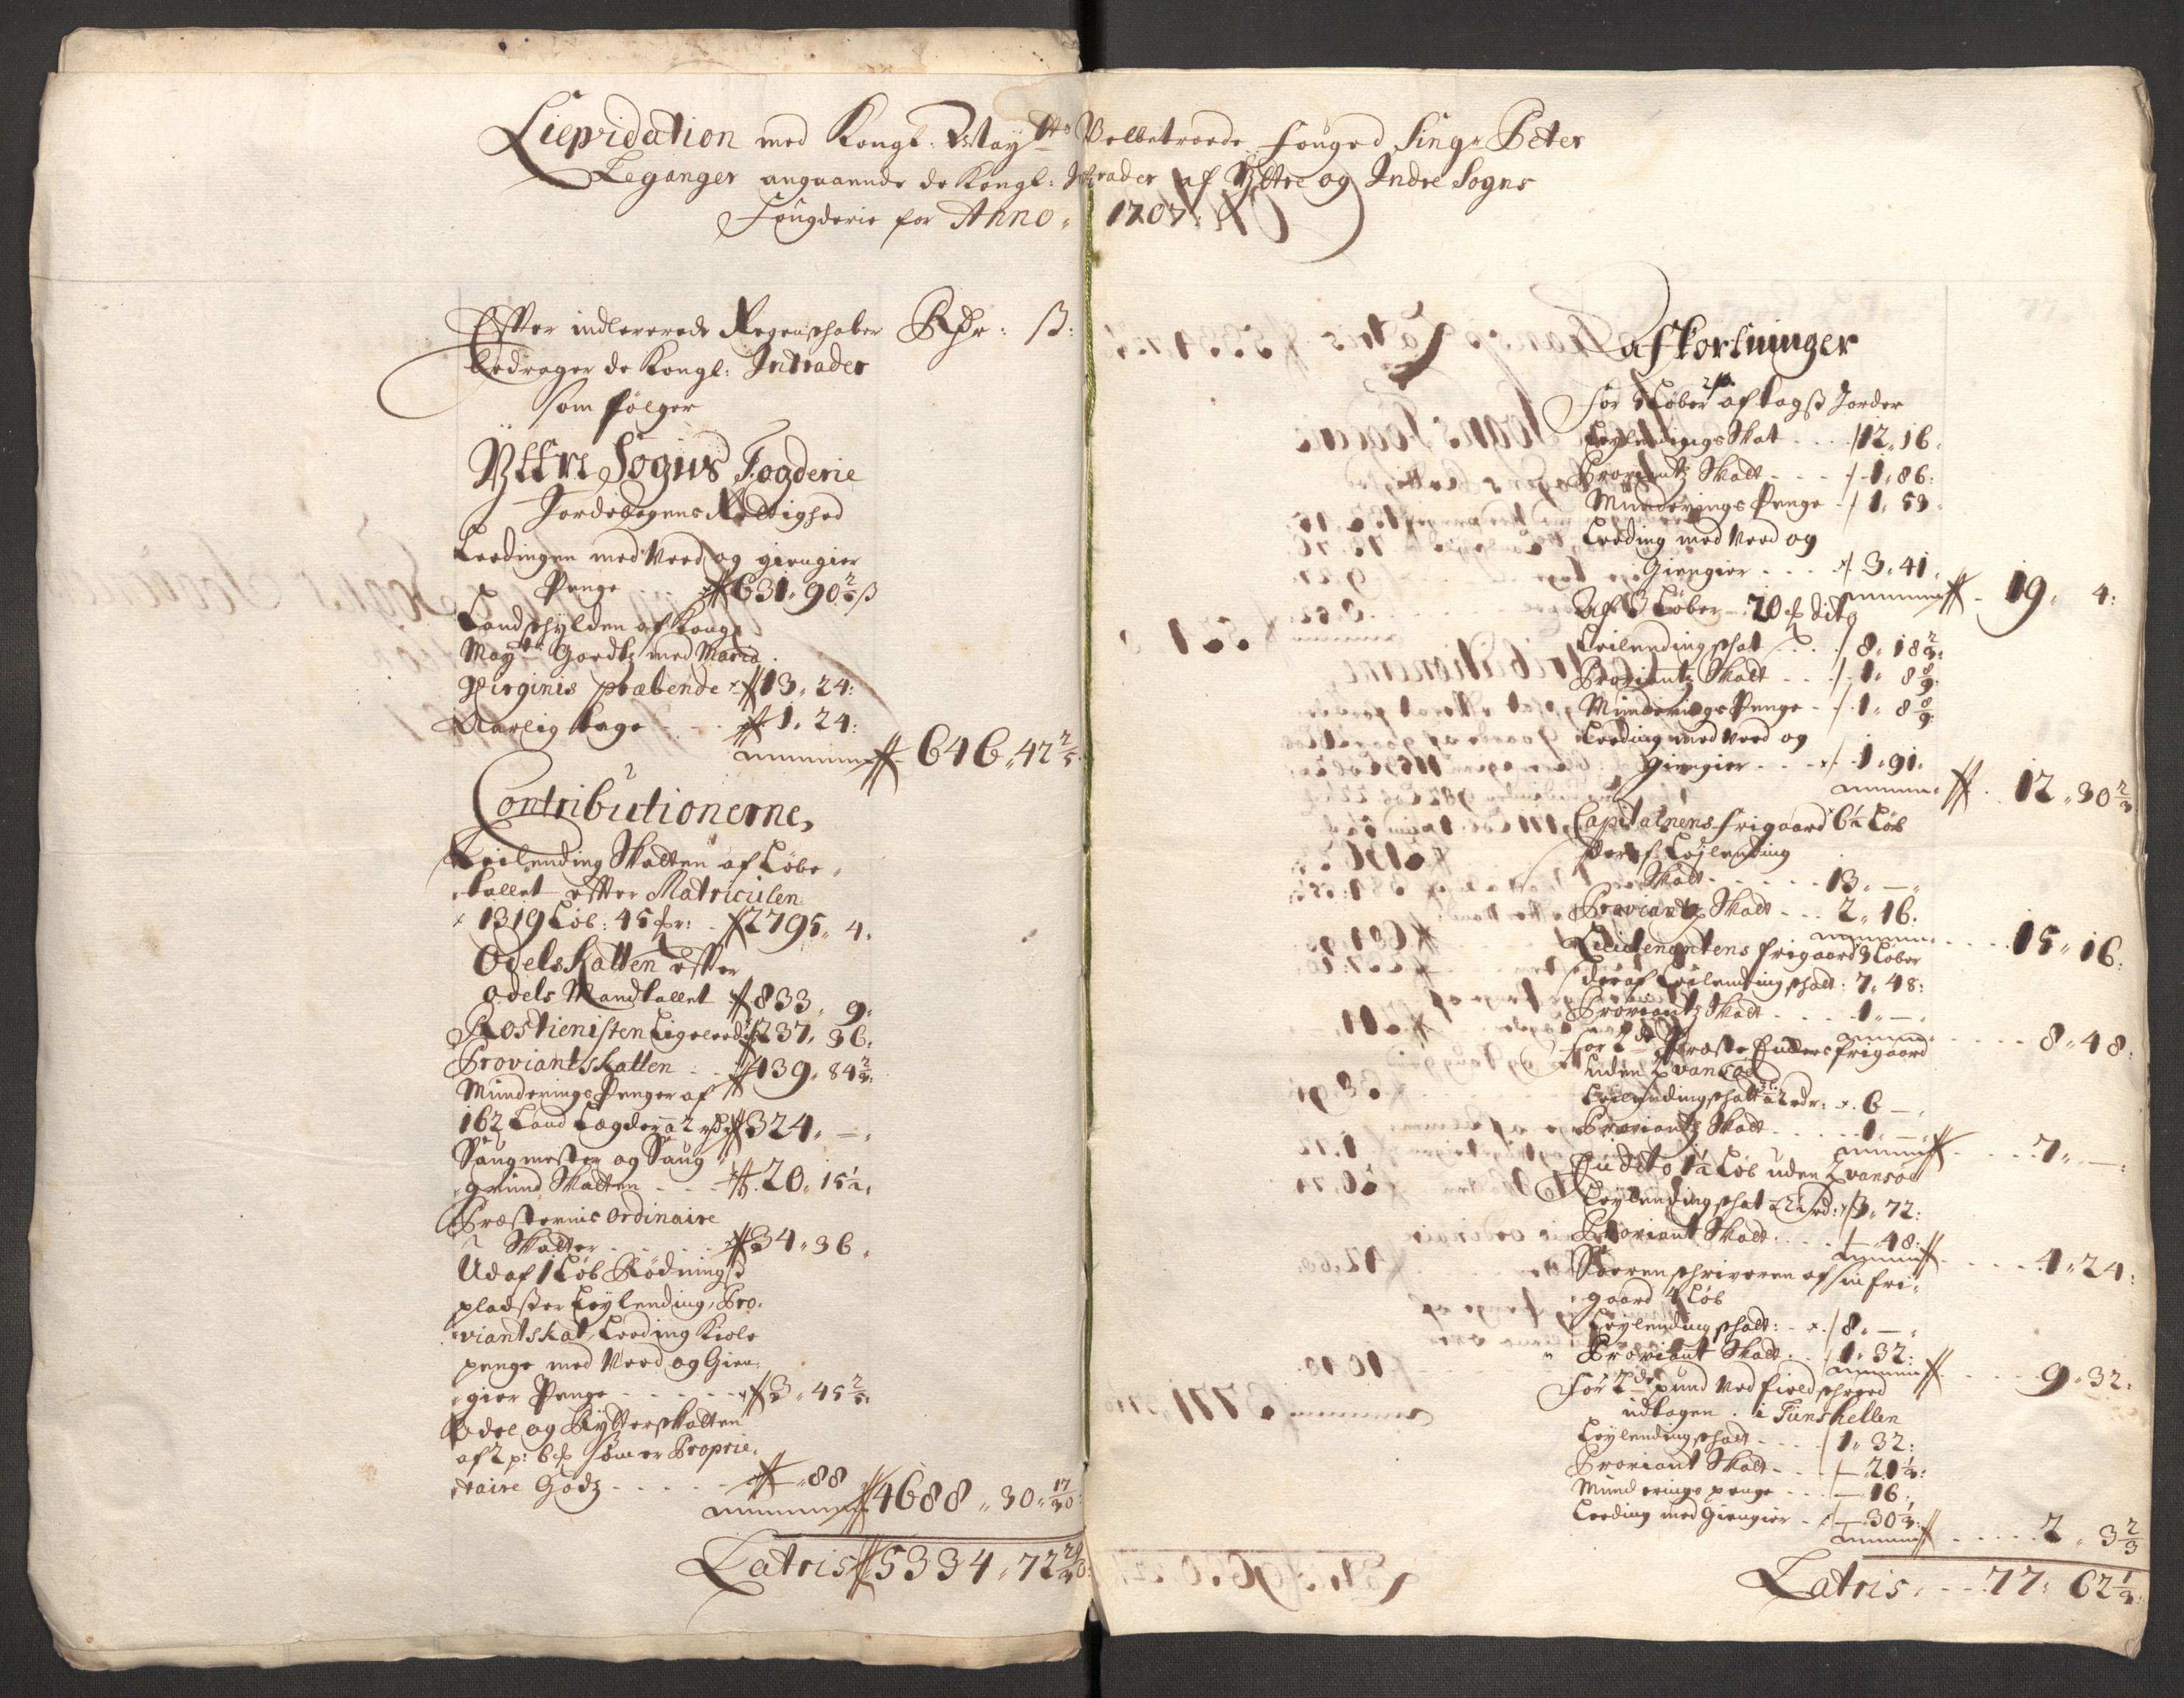 Liqvidation med Kongl: May:tts Velbetroede Fouged Sing:r Peter
Leganger angaaende de Kongl: Intrader af Yttre og Indre Sogns
Fougderie for Anno 1707
Efter indleverede Regenschaber Rdr: ß:
bedrager de Kongl: Intrader
som følger
Yttre Sogns Fogderie
Jordebogens Rettighed
Leedingen med Veed og giengier
Penge 631. 90 2/5 ß
Landschylden af Kong:
May:ts Goedtz med Maria
Virginis præbende 13. 24:
Aarlig tage 1. 24:
646. 42 2/5
Contributionerne,
Leilending Skatten af Løbe
tallet efter Matriculen
1319 Løb: 45 2795. 4.
Odels Katten efter
odels Mandtallet 833. 9:
Rostienisten Ligeleedis 237. 36.
Proviantskatten 439. 84
Munderings Penger af
162 Land Lægder a 2 rdr 324. —
Saugmester og Saug
grund Skatten 20. 15½.
Præsternis ordinaire
Skatter 34. 36.
Ud af 1 Løb Rødnings
pladser Leylending, Pro-
viantskat, Leeding Kiøle
penge med Veed og Gien-
gier Penge 3. 45
Odel og Rytterskatten
af 2 p: 6 som er Proprie-
taire Godtz 88
4688. 30. 17/30
Latris 5334. 72
afkortninger
For Løber aftagß Jorder
Leylendings Skat 12. 16.
Proviantz Skatt 1. 86:
Munderings Penge 1. 53
Leeding med Veed og
Giengier 3. 41.
19. 4:
Af 3 Løber 20 dito
Leilendingschat 8. 18
Proviantz Skatt 1. 8 8/9
Munderings Penge 1. 8 8/9
Leeding med Veed og
Giengier 1. 91.
12. 30 2/3
Capitainens frigaard 6½ Løb
deraf Leylending
Skatt 13. —
Proviantz Skatt 2. 16.
15. 16.
Leutenantens frigaard 3 Løber
deraf Leilendingschatt: 7. 48:
Proviantz Skatt 1. —
8. 48:
For 2de Præste Enckers frigaard
uden
Leilendingschatt a 2 rdr: 6 —
Proviantz Skatt 1. —
7. —
En dito 1½ Løb uden
Leylendingschat 3. 72:
Proviant Skatt: — 48:
4. 24:
Soerenschriveren af sin fri-
gaard 4 Løb
Leylendingschatt: 8. —
Proviant Skatt 1. 32:
9. 32:
For 2de pund Ved fieldschreed
udtagen i Tunshellen
Leylendingschatt 1. 32:
Proviant Skatt — 21⅓:
Munderings penge — 16.
Leeding med Giengier — 30⅓:
2. 3 2/3
Latris 77. 62 1/3